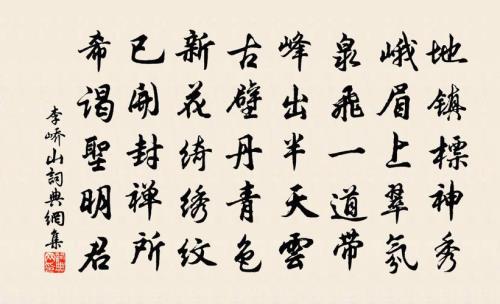 地镇標神秀
峨眉上翠氛
泉飛一道带
峰出半天雲
古壁丹青色
新花綺绣纹
已開封禅所
希谒聖明君
李峤山詞典網集